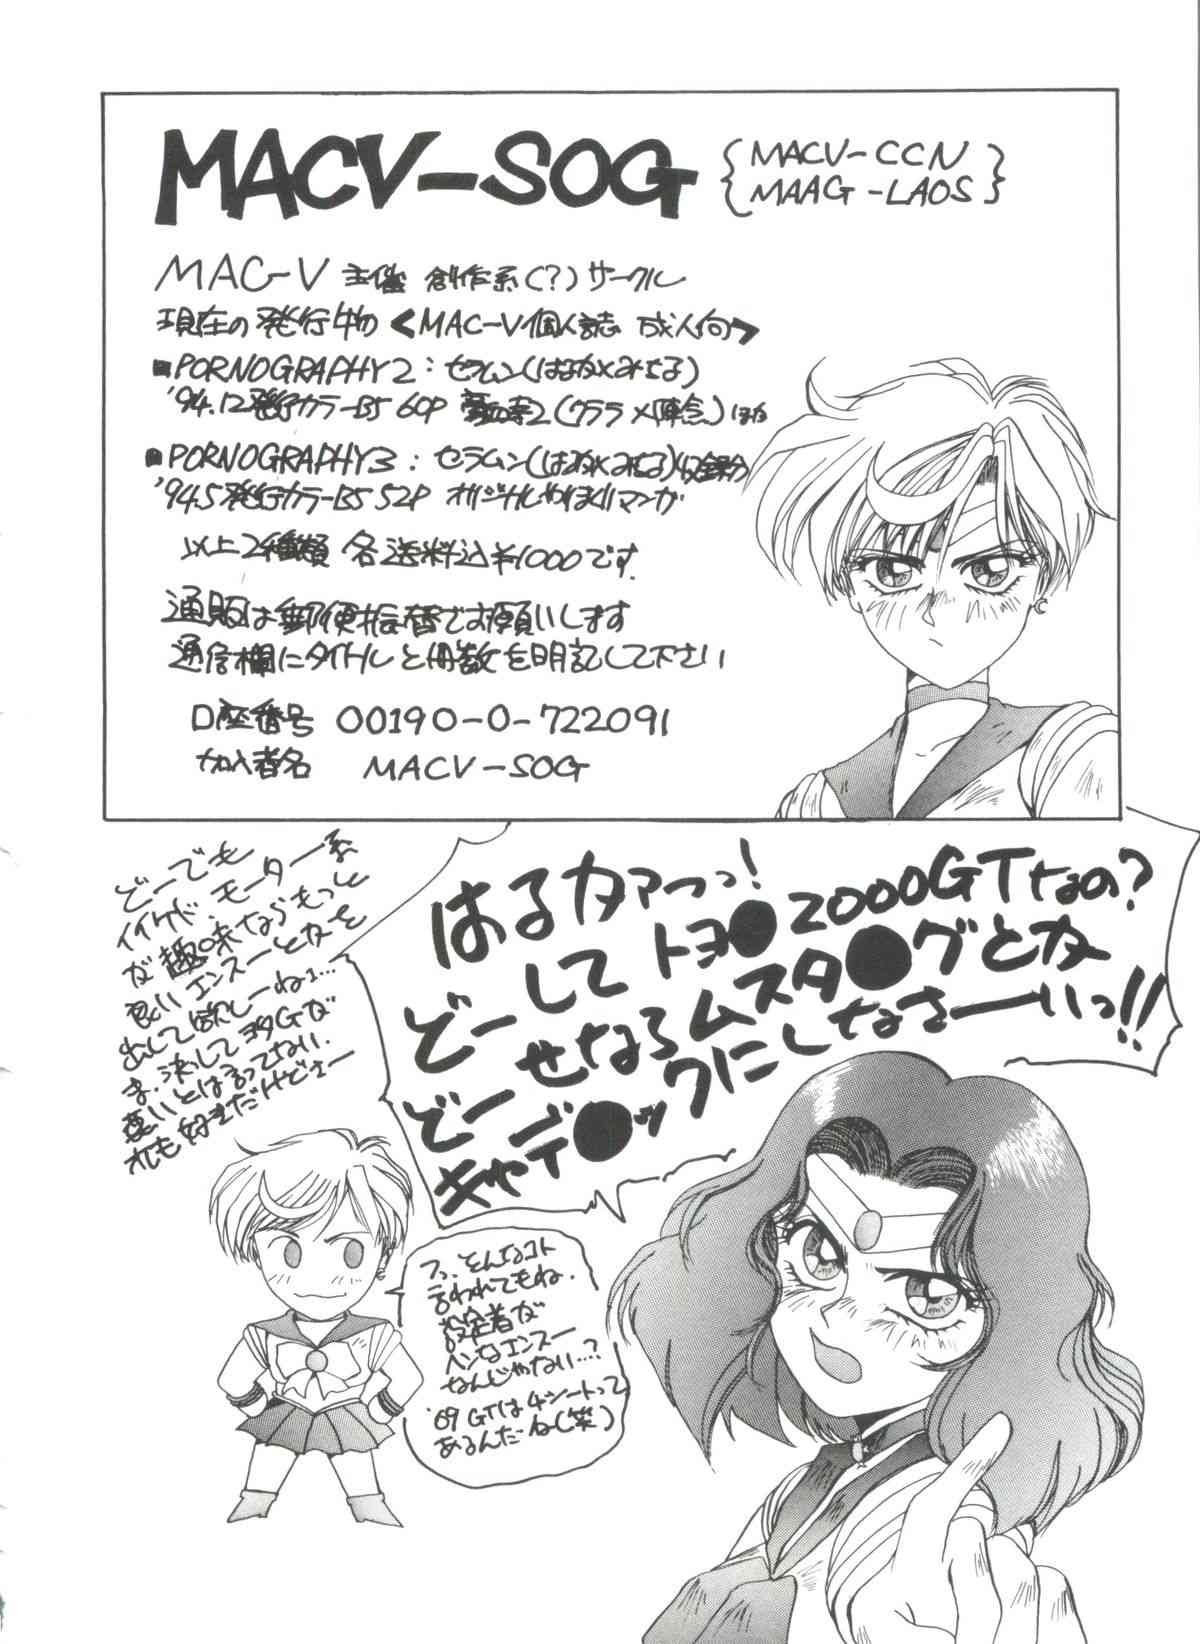 MACV-SOG
MACV-CCN
MAAG-LAOS
MAC-V 主催 創作系(?)サークル
現在の発行物 <MAC-V個人誌 成人向>
■PORNOGRAPHY2:セラムン(はるか×みちる)
'94.12発行カラーB5 60P (クララ×) ほか
■PORNOGRAPHY3:セラムン(はるか×みちる)収録
'94.5発行カラーB5 52P オリジナルやおいマンガ
以上2種類 各送料込¥1000です.
通販は郵便振替でお願いします
通信欄にタイトルと冊数を明記して下さい
口座番号 00190-0-722091
加入者名 MACV-SOG
はるかァーっっ!
どーしてトヨ●2000GTなの?
どーせならムスタ●グとか
キャデ●ックにしなさーーいっ!!
どーでも
イイケド、モーター系
が趣味ならもっと
良いエンスーとカーを
出して欲しーねェ…
ま、決してヨタGが
悪いとは言ってない.
オレも好きだけどさー
フッ、そんなコト
言われてもね.
設定者が
ヘンなエンスー
なんじゃない…?
'69 GTは4シートって
あるんだーね(笑)